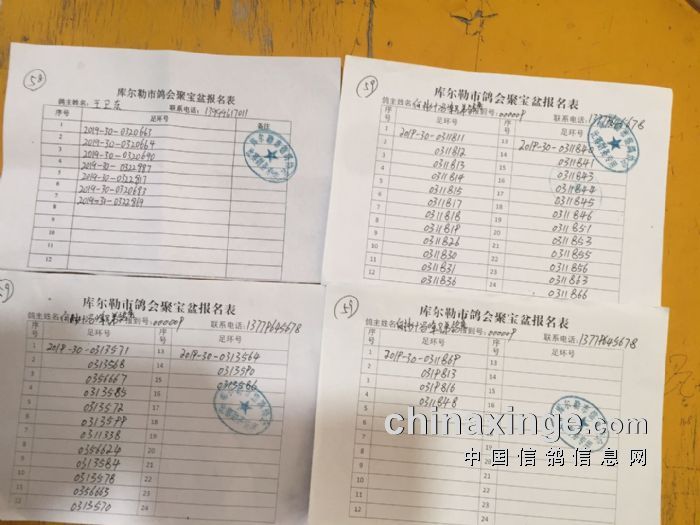 58
库尔勒市鸽会聚宝盆报名表
鸽主姓名: 王卫东 联系电话:
序号 足环号 备注
1 2019-30-0320663
2 2019-30-0320664
3 2019-30-0320690
4 2019-30-0322987
5 2019-30-0322917
6 2019-30-0320683
7 0322869
8
9
10
11
12
59
库尔勒市鸽会聚宝盆报名表
鸽主姓名: 号:000009 联系电话: 13779645678
序号 足环号 序号 足环号
1 2019-30-0311811 13 2019-30-0311840
2 0311812 14 0311841
3 0311813 15 0311843
4 0311814 16 0311844
5 0311815 17 0311845
6 0311817 18 0311846
7 0311818 19 0311851
8 0311819 20 0311853
9 0311826 21 0311855
10 0311830 22 0311856
11 0311831 23 0311863
12 0311836 24 0311866
59
库尔勒市鸽会聚宝盆报名表
鸽主姓名: 号:000009 联系电话: 13779645678
序号 足环号 序号 足环号
1 2019-30-0313571 13 2019-30-0313564
2 0313568 14 0313590
3 0356667 15 0313586
4 0313585 16
5 0313572 17
6 0313588 18
7 0311338 19
8 0356624 20
9 0313584 21
10 0313578 22
11 0356665 23
12 0313570 24
59
库尔勒市鸽会聚宝盆报名表
鸽主姓名: 号:000009 联系电话: 13779645678
序号 足环号 序号 足环号
1 2019-30-0311869 13
2 0319813 14
3 0319816
4 0311848
5
6
7
8
9
10 22
11 23
12 24
chinaxinge.com
中国信鸽信息网